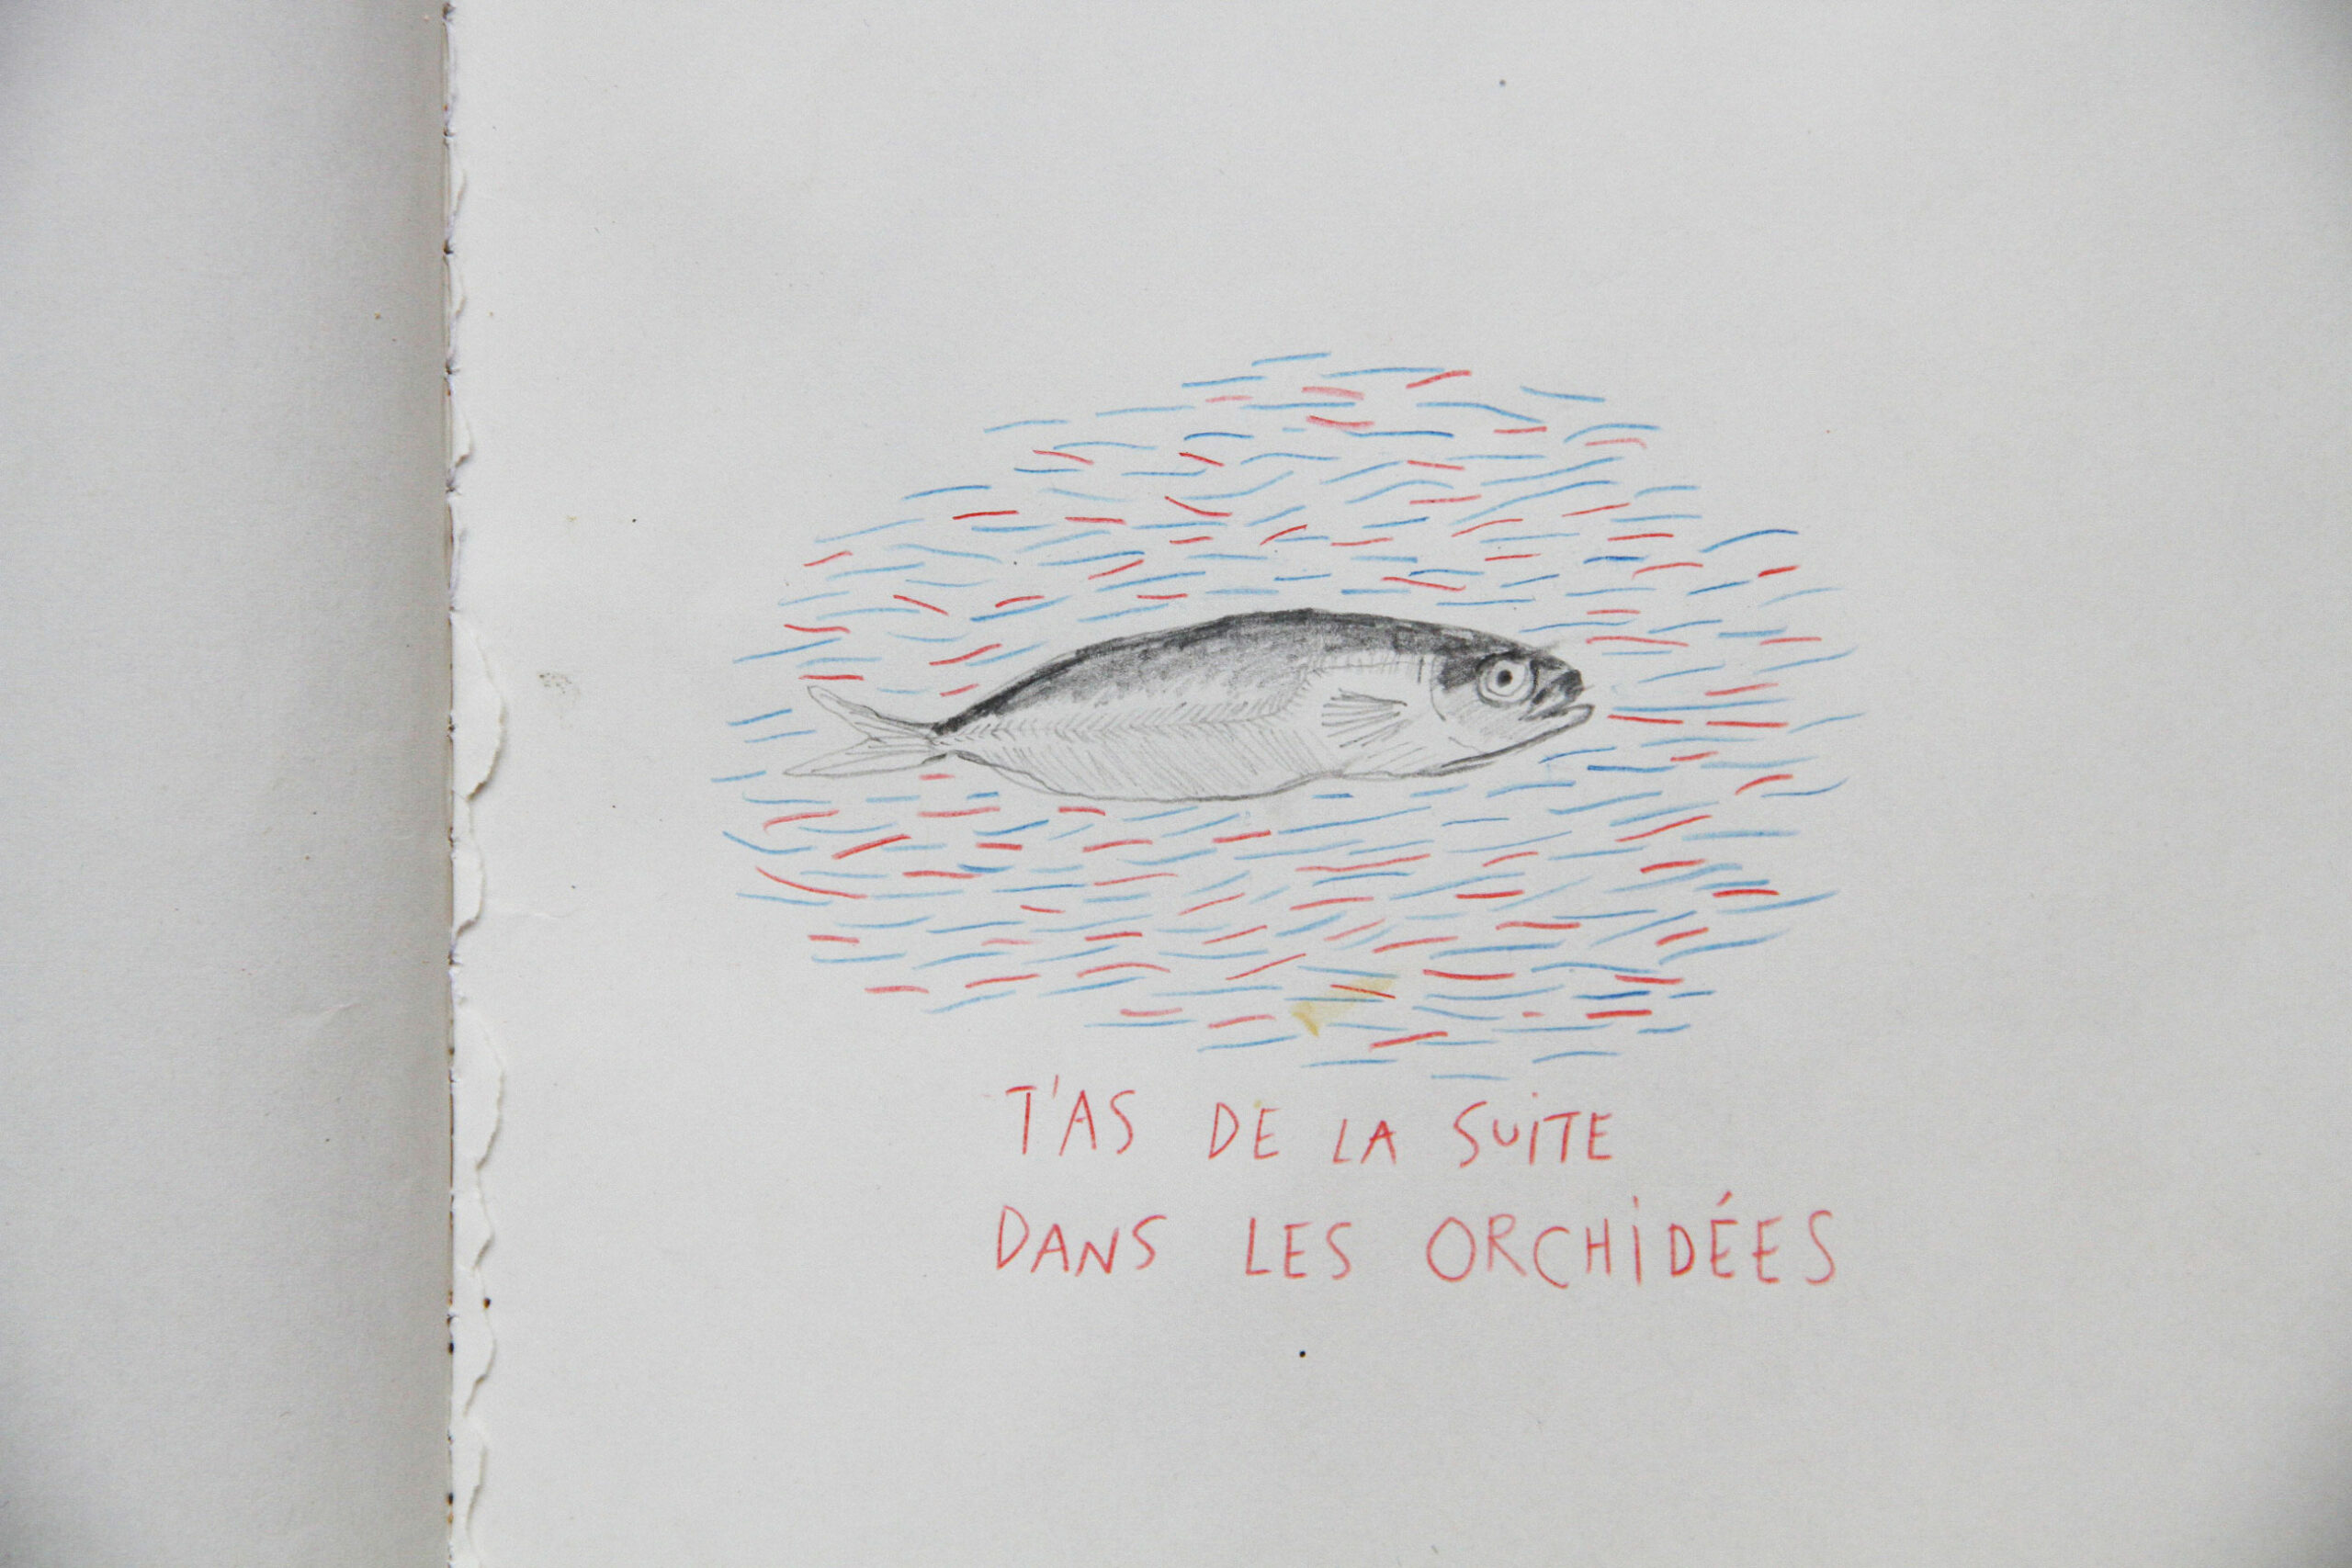 T'AS DE LA SUITE
DANS LES ORCHIDÉES